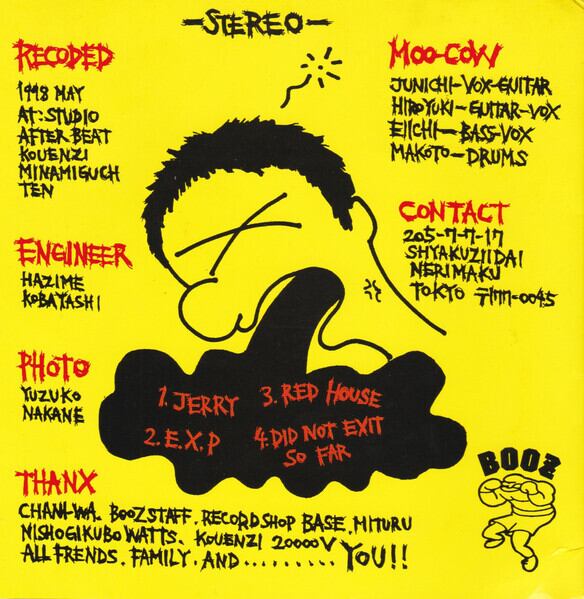 -STEREO-
RECODED
1998 MAY
At:STUDIO
AFTER BEAT
KOUENZI
MINAMIGUCH
TEN
ENGINEER
HAZIME
KOBAYASHI
PHOTO
YUZUKO
NAKANE
MOO-COW
JUNICHI-VOX-GUITAR
HIROYUKI-GUITAR-VOX
EIICHI-BASS-VOX
MAKOTO-DRUMS
CONTACT
205-7-7-17
SHYAKUZIIDAI
NERIMAKU
TOKYO 〒177-0045
1. JERRY
2. E.X.P
3. RED HOUSE
4. DID NOT EXIT
SO FAR
BOOZ
THANX
CHANI-WA. BOOZ STAFF. RECORD SHOP BASE. MITURU
NISHOGIKUBO WATTS. KOUENZI 20000V
ALL FRENDS. FAMILY. AND ......... YOU!!